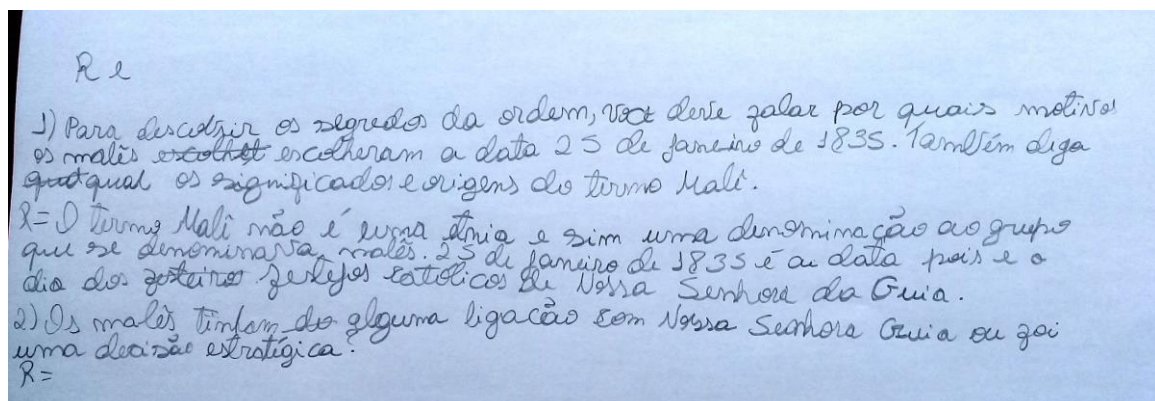 R e
1) Para descobrir os segredos da ordem, você deve falar por quais motivos
os malês escolheram a data 25 de janeiro de 1835. Também diga
qual os significados e origens do termo Malê.
R= O termo Malê não é uma etnia e sim uma denominação ao grupo
que se denominava malês. 25 de janeiro de 1835 é a data pois e o
dia dos festejos católicos de Nossa Senhora da Guia.
2) Os malês tinham do alguma ligação com Nossa Senhora Guia ou foi
uma decisão estratégica?
R=